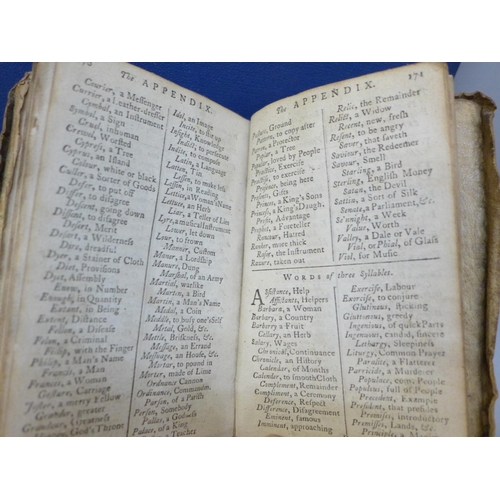 The APPENDIX.
Courier, a Messenger
Currier, a Leather-dresser
Cymbal, an Instrument
Symbol, a Sign
Cruel, inhuman
Crewel, Worsted
Cypress, a Tree
Cyprus, an Island
Colour, white or black
Culler, a Sorter of Goods
Defer, to put off
Differ, to disagree
Descent, going down
Dissent, to disagree
Desert, Merit
Desart, a Wilderness
Dire, dreadful
Dyer, a Stainer of Cloth
Diet, Provisions
Dyet, Assembly
Enow, in Number
Enough, in Quantity
Extant, in Being
Extent, Distance
Fellon, a Disease
Felon, a Criminal
Fillip, with the Finger
Philip, a Man's Name
Francis, a Man
Frances, a Woman
Gesture, Carriage
Jester, a merry Fellow
Greater
Grandeur, Greatness
God's Throne
Idol, an Image
Incite, to stir up
Insight, Knowledge
Indict, to prosecute
Indite, to compose
Latin, a Language
Latten, Tin
Lessen, to make less
Lesson, in Reading
Lettice, a Woman's Name
Lettuce, an Herb
Liar, a Teller of Lies
Lyre, a musical Instrument
Lower, let down
Lour, to frown
Manner, Custom
Manor, a Lordship
Manure, Dung
Marshal, of an Army
Martial, warlike
Martin, a Bird
Martin, a Man's Name
Medal, a Coin
Meddle, to busy one'self
Metal, Gold, &c.
Mettle, Briskness, &c.
Message, an Errand
Messuage, an House, &c.
Mortar, to pound in
Mortar, made of Lime
Ordinance Cannon
Ordinance, Commandm.
Parson, of a Parish
Person, Somebody
Pallas, a Goddess
Palace, of a King
a Teacher
The APPENDIX. 171
Pasture, Ground
Pattern, to copy after
Patron, a Protector
Poplar, a Tree
Popular, loved by People
Practice, Exercise
Practise, to exercise
Presence, being here
Presents, Gifts
Princes, a King's Sons
Princess, a King's Daugh.
Profit, Advantage
Prophet, a Foreteller
Rancour, Hatred
Ranker, more thick
Rase, the Instrument
Rasure, taken out
Relic, the Remainder
Relict, a Widow
Recent, new, fresh
Resent, to be angry
Saver, that saveth
Saviour, the Redeemer
Savour, Smell
Starling, a Bird
Sterling, English Money
Satan, the Devil
Sattin, a Sort of Silk
Senate, a Parliament, &c.
Se'nnight, a Week
Value, Worth
Valley, a Dale or Vale
Vial, or Phial, of Glass
Viol, for Music
WORDS of three Syllables.
Assistance, Help
Assistants, Helpers
Barbara, a Woman
Barbary, a Country
Barberry a Fruit
Cellery, an Herb
Salary, Wages
Chronical, Continuance
Chronicle, an History
Calendar, of Months
Calender, to smooth Cloth
Complement, Remainder
Compliment, a Ceremony
Deference, Respect
Difference, Disagreement
Eminent, famous
Imminent, approaching
Exercise, Labour
Exorcise, to conjure
Glutinous, sticking
Gluttonous, greedy
Ingenious, of quick Parts
Ingenuous, candid, sincere
Lethargy, Sleepiness
Liturgy, Common Prayer
Parasite, a Flatterer
Parricide, a Murderer
Populace, com. People
Populous, full of People
Precedent, Example
President, that presides
Premises, introductory
Premisses, Lands, &c.